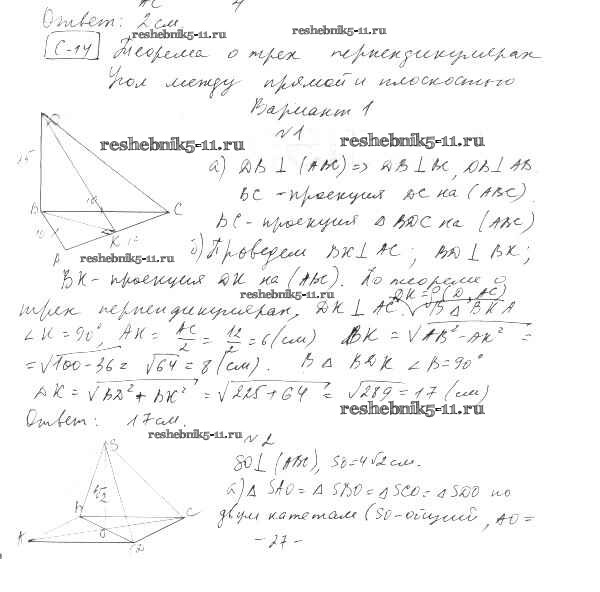 Ответ: 2 см.
reshebnik5-11.ru
С-14 Теорема о трех перпендикулярах
Угол между прямой и плоскостью
Вариант 1
№1
reshebnik5-11.ru
reshebnik5-11.ru
а) DB ⊥ (ABC) => DB ⊥ BC, DB ⊥ AB.
BC - проекция DC на (ABC).
BC - проекция △ BDC на (ABC)
б) Проведем BK ⊥ AC; BD ⊥ BK;
reshebnik5-11.ru
BK - проекция DK на (ABC). По теореме о
reshebnik5-11.ru
трех перпендикулярах, DK ⊥ AC. DK = ρ(D, AC) В △ BKA
∠K = 90°, AK = AC/2 = 12/2 = 6 (см) BK = √AB² - AK² =
= √100-36 = √64 = 8 (см). В △ BDK ∠B = 90°
DK = √BD² + BK² = √225+64 = √289 = 17 (см)
reshebnik5-11.ru
Ответ: 17 см.
reshebnik5-11.ru
№2
SO ⊥ (ABC), SO = 4√2 см.
а) △ SAO = △ SBO = △ SCO = △ SDO по
двум катетам (SO - общий, AO =
- 27 -